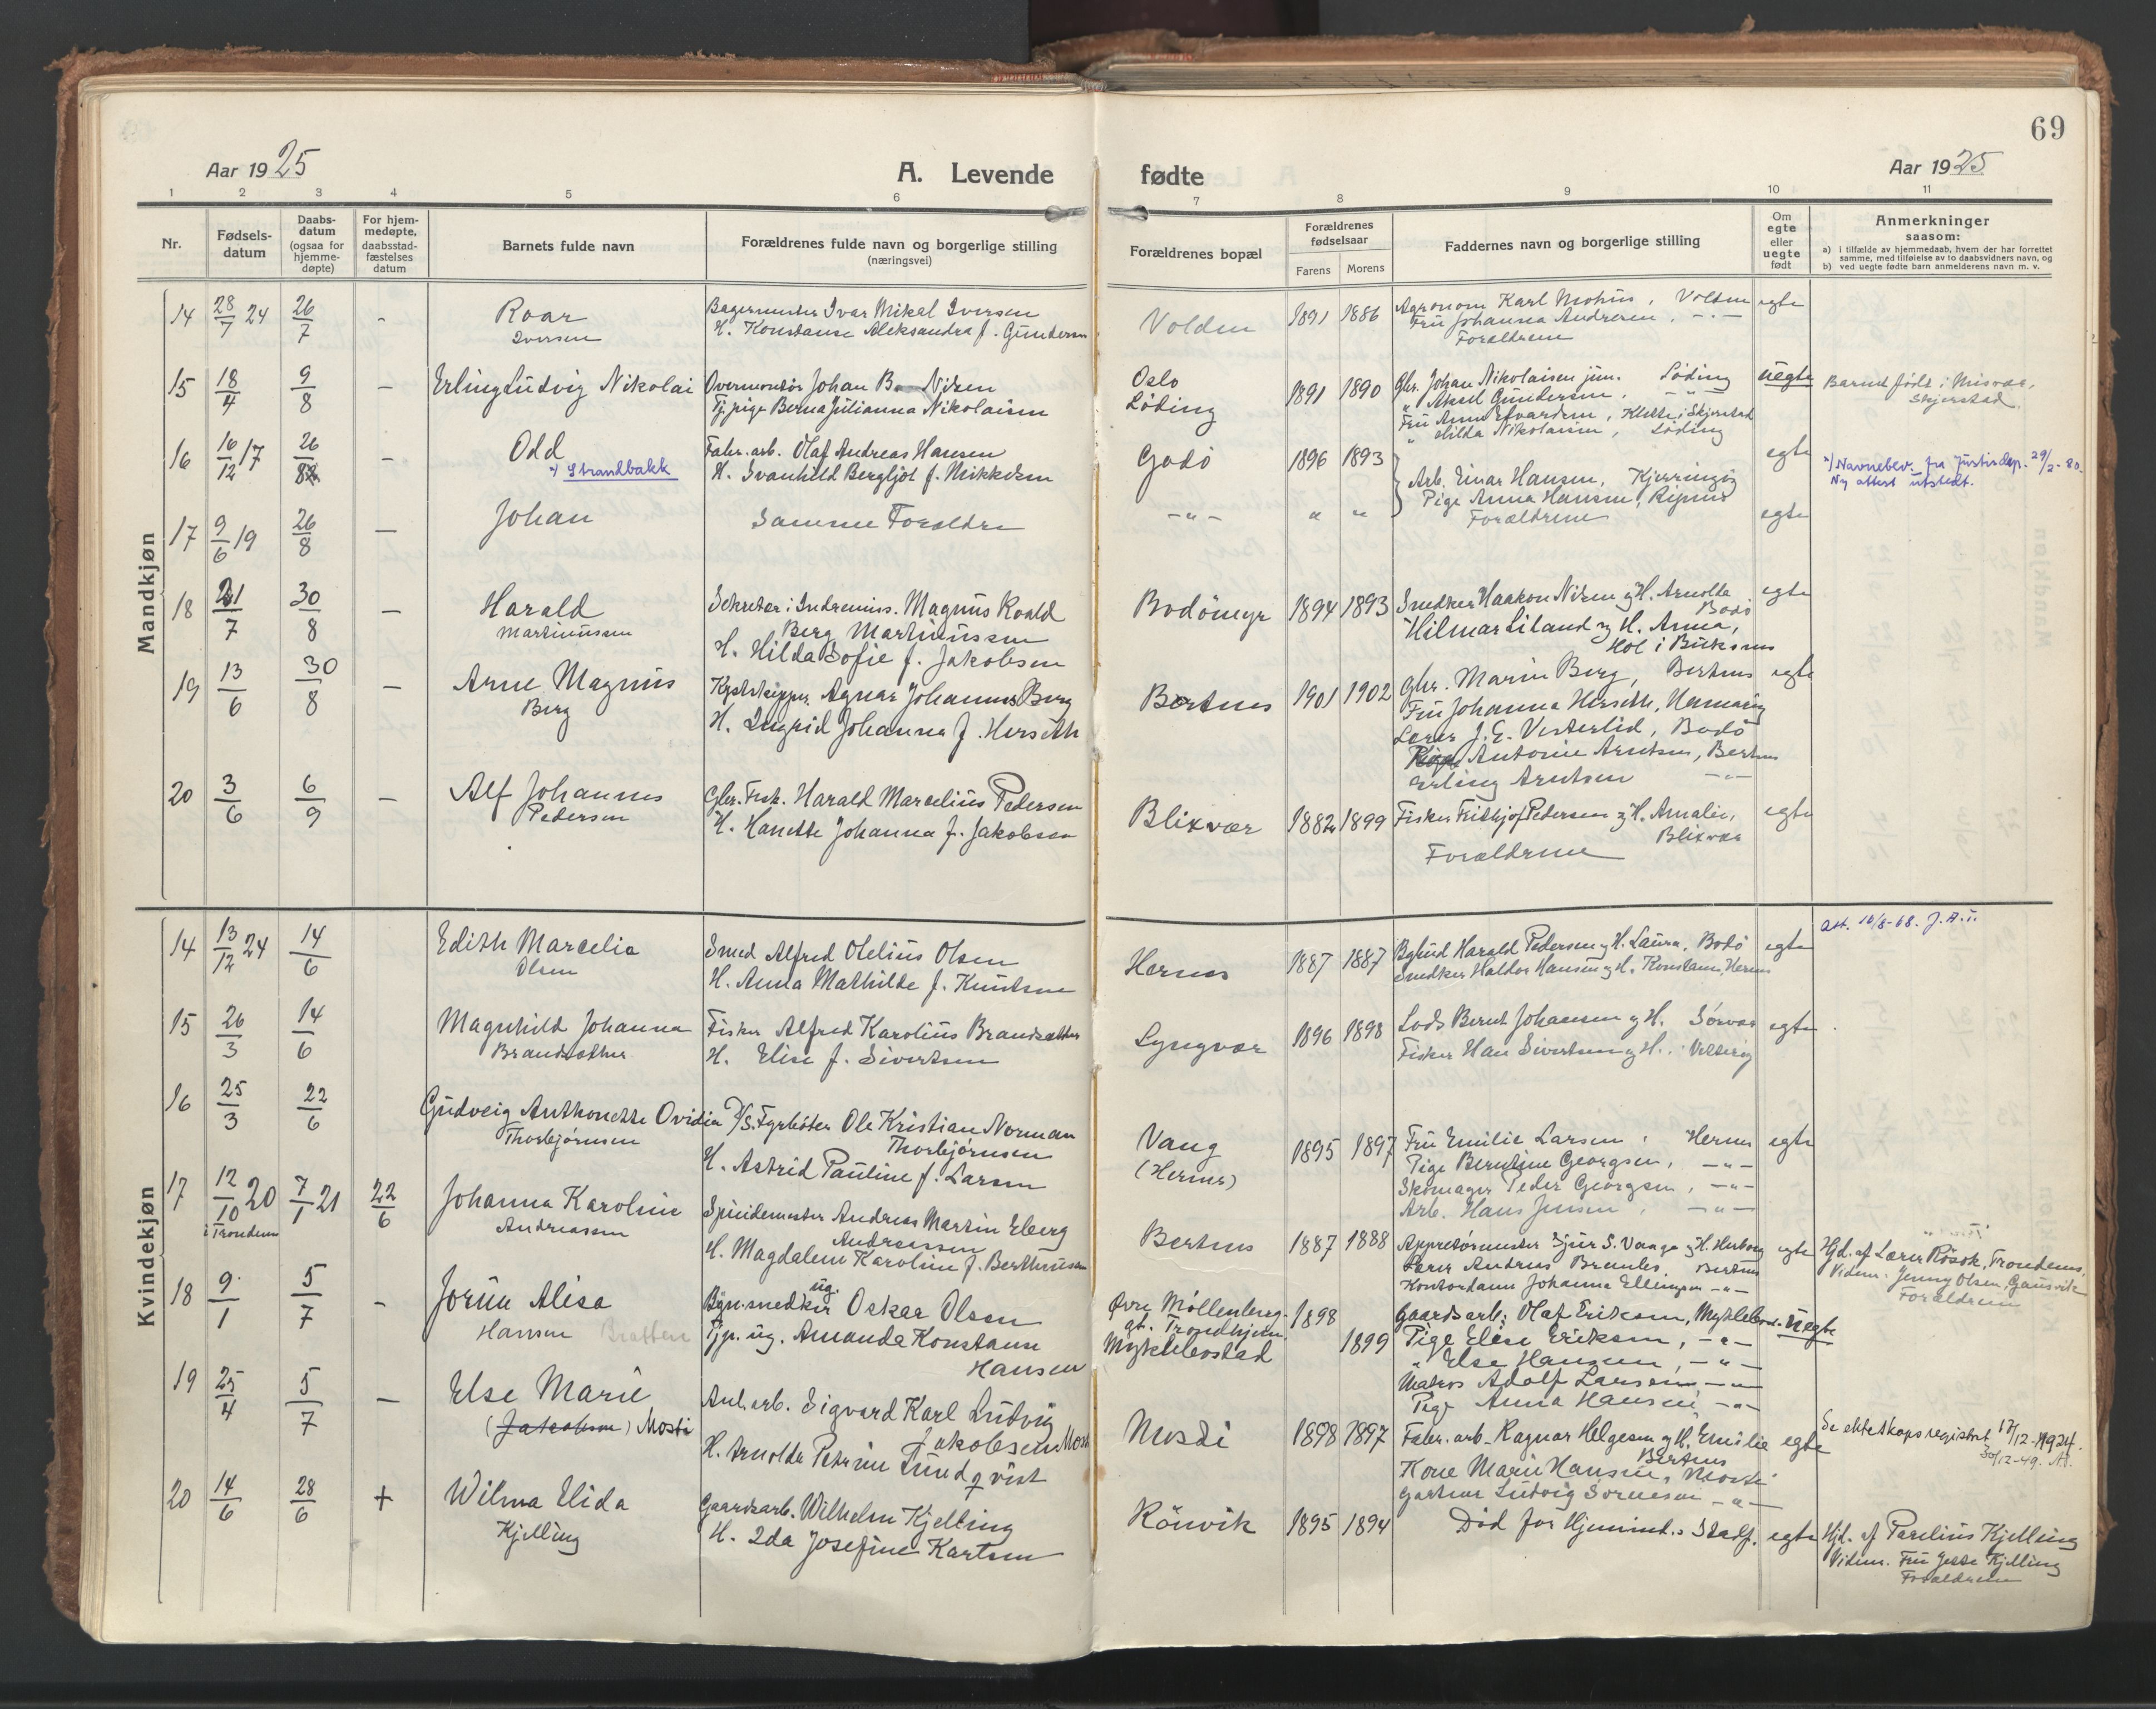 69
Aar 1925
A. Levende
fødte
Aar 1925
1 2 3 4 5 6 7 8 9 10 11
Nr.
Fødsels-
datum
Daabs-
datum
(ogsaa for
hjemme-
døpte)
For hjem-
medøpte,
daabsstad-
fæstelses
datum
Barnets fulde navn
Forældrenes fulde navn og borgerlige stilling
(næringsvei)
Forældrenes bopæl
Forældrenes
fødselsaar
Farens Morens
Faddernes navn og borgerlige stilling
Om
egte
eller
uegte
født
Anmerkninger
saasom:
a) i tilfælde av hjemmedaab, hvem der har forrettet
samme, med tilføielse av to daabsvidners navn, og
b) ved uegte fødte barn anmelderens navn m. v.
Mandkjøn
14 28/7 24 26/7 - Roar
Iversen
Bagermester Ivar Mikal Iversen
H. Konstanse Aleksandra f. Gundersen
Volden 1891 1886
Agronom Karl Mohus, Volden
Fru Johanna Andresen, -"-
Forældrene
egte
15 18/4 9/8 - Erling Ludvig Nikolai
Overmontør Johan Bo Nilsen
Tj. pige Berna Julianna Nikolaisen
Oslo
Løding
1891 1890
Gbr. Johan Nikolaisen jun. Løding
" Aksel Gundersen, -"-
Fru Anna Edvardsen, Klette i Skjerstad
" Hilda Nikolaisen, Løding
uegte
Barnet født i Misvær,
Skjerstad.
16 16/12 17 26/8 - Odd
x) Strandbakk
Fabr. arb. Olaf Andreas Hansen
H. Svanhild Bergljot f. Mikkelsen
Godø 1896 1893
Arb. Einar Hansen, Kjerringøy
Pige Anna Hansen, Ripnes
Forældrene
egte
x) Navnebev. fra Justisdep. 29/2-80.
Ny attest utstedt.
17 9/6 19 26/8 - Johan
Samme Forældre
-"- " "
egte
18 21/7 30/8 - Harald
Martinussen
Sekretær i Indremiss. Magnus Roald
Berg Martinussen
H. Hilda Sofie f. Jakobsen
Bodømyr 1894 1893
Snedker Haakon Nilsen og H. Arnolda
Bodø
" Hilmar Liland og H. Anna,
Hol i Buksnes
egte
19 13/6 30/8 - Arne Magnus
Berg
Kystskipper Agnar Johannes Berg
H. Ingrid Johanna f. Herseth
Bertnes 1901 1902
Gbr. Marius Berg, Bertnes
Fru Johanna Herseth, Hamarøy
Lærer J. E. Vesterlid, Bodø
Antonie Arntsen, Bertnes
Erling Arntsen -"-
egte
20 3/6 6/9 - Alf Johannes
Pedersen
Gbr. Fisk. Harald Marcelius Pedersen
H. Hanette Johanna f. Jakobsen
Blixvær 1882 1899
Fisker Frithjof Pedersen og H. Amalie,
Blixvær
Forældrene
egte
Kvindekjøn
14 13/12 24 14/6 Edith Marcelia
Olsen
Smed Alfred Otelius Olsen
H. Anna Mathilde f. Knutsen
Hernes 1887 1887
Bybud Harald Pedersen og H. Laura, Bodø
Snedker Haldor Hansen og H. Konstanse, Hernes
egte
Att. 16/8-68. J.A.T.
15 26/3 14/6 Magnhild Johanna
Brandsæther
Fisker Alfred Karolius Brandsæther
H. Elise f. Sivertsen
Lyngvær 1896 1898
Lods Bernt Johansen og H. Sørvær
Fisker Hans Sivertsen og H.
egte
16 25/3 22/6 Gudveig Anthonette Ovidia
Thorbjørnsen
D/S. Fyrbøter Ole Kristian Norman
Thorbjørnsen
H. Astrid Pauline f. Larsen
Vang
(Hernes)
1895 1897
Fru Emilie Larsen, Hernes
Pige Berntine Georgsen, -"-
Skomager Peder Georgsen, -"-
Arb. Hans Jensen, -"-
egte
17 12/10 20 7/1 21 22/6
i Trondenes
Johanna Karoline
Andreassen
Spindemester Andreas Martin Eberg
Andreassen
H. Magdalena Karoline f. Berthinsen
Bertnes 1887 1888
Appretørmester Sjur S. Vange og H. Herborg
Lærer Andreas Bremles, Bertnes
Kontordame Johanna Ellingsen -"-
egte
Hjd. af Lærer Røsok, Trondenes,
Vidner: Jenny Olsen, Gausvik
Forældrene
18 9/1 5/7 - Jorun Alisa
Hansen Bratten
Bygn.snedker ug. Oskar Olsen
Tjp. ug. Amanda Konstanse
Hansen
Øvre Møllenberg-
gt. Trondhjem.
Myklebostad
1898
1899
Gaardsarb. Olaf Eriksen, Myklebost.
Pige Elise Eriksen, -"-
" Else Hansen, -"-
Matros Adolf Larsen, -"-
Pige Anna Hansen -"-
uegte
19 25/4 5/7 - Else Marie
(Jakobsen) Mosti
Anl. arb. Sigvard Karl Ludvig
Jakobsen Mosti
H. Arnolda Petrine Lundqvist
Mosti 1898 1897
Fabr. arb. Ragnar Helgesen og H. Emilie
Bertnes
Kone Marie Hansen, Mosti
Gartner Ludvig Sørensen -"-
egte
Se ekteskapsregistret 17/12-1924.
30/12-49.
20 14/6 28/6 + Wilma Elida
Kjelling
Gaardsarb. Wilhelm Kjelling
H. Ida Josefine Karlsen
Rønvik 1895 1894
Død før Hjemmed.s Stadf. egte
Hjd. af Parelius Kjelling
Vidner. Fru Jette Kjelling
Forældrene